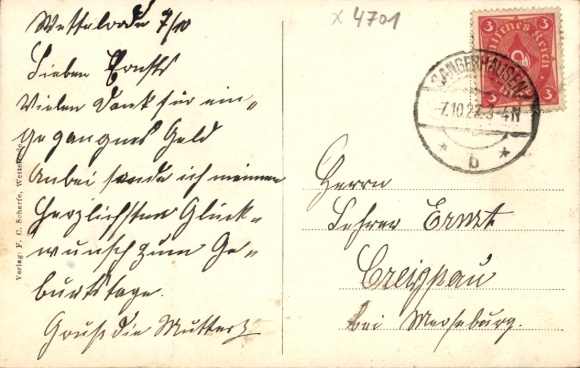 Wettelrode 7/10
x 4701
Lieben Ernsts
Vielen Dank für ein-
gegangnes Geld
Anbei sende ich meinen
herzlichsten Glück-
wunsch zum Ge-
burtstage.
Gruß die Mutter
Verlag: F. C. Scharfe, Wettelrode
3 Deutsches Reich 3
3 3
SANGERHAUSEN
7.10.22. 3-4N
* b *
Herrn
Lehrer Ernst
Creippau
bei Merseburg.